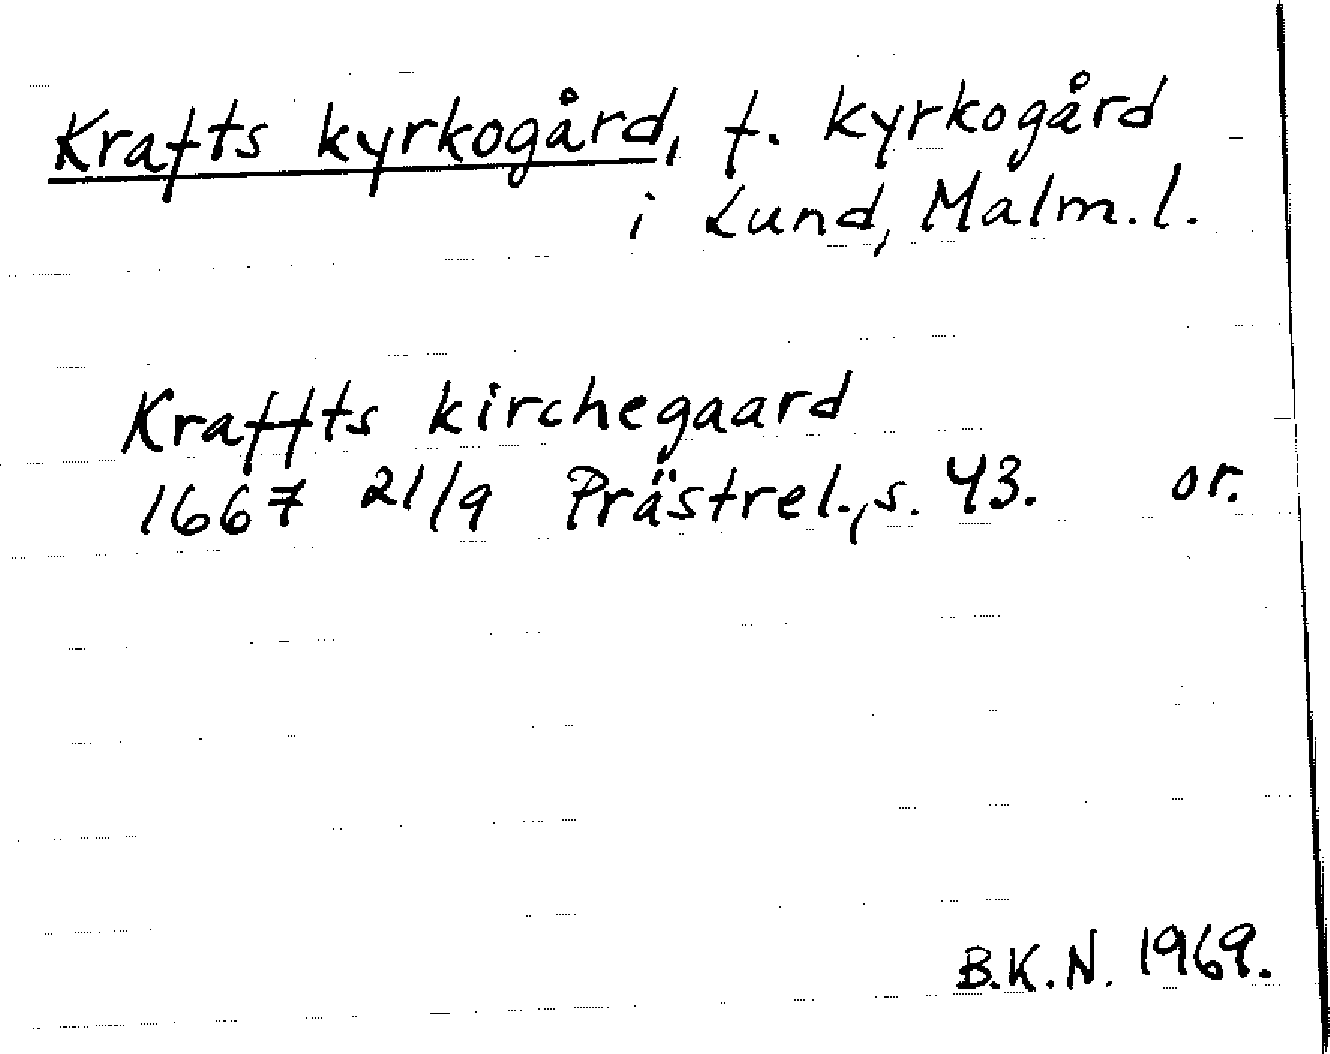 Krafts kyrkogård, f. kyrkogård
i Lund, Malm. l.
Kraffts kirchegaard
1667 21/9 Prästrel., s. 43. or.
B.K.N. 1969.